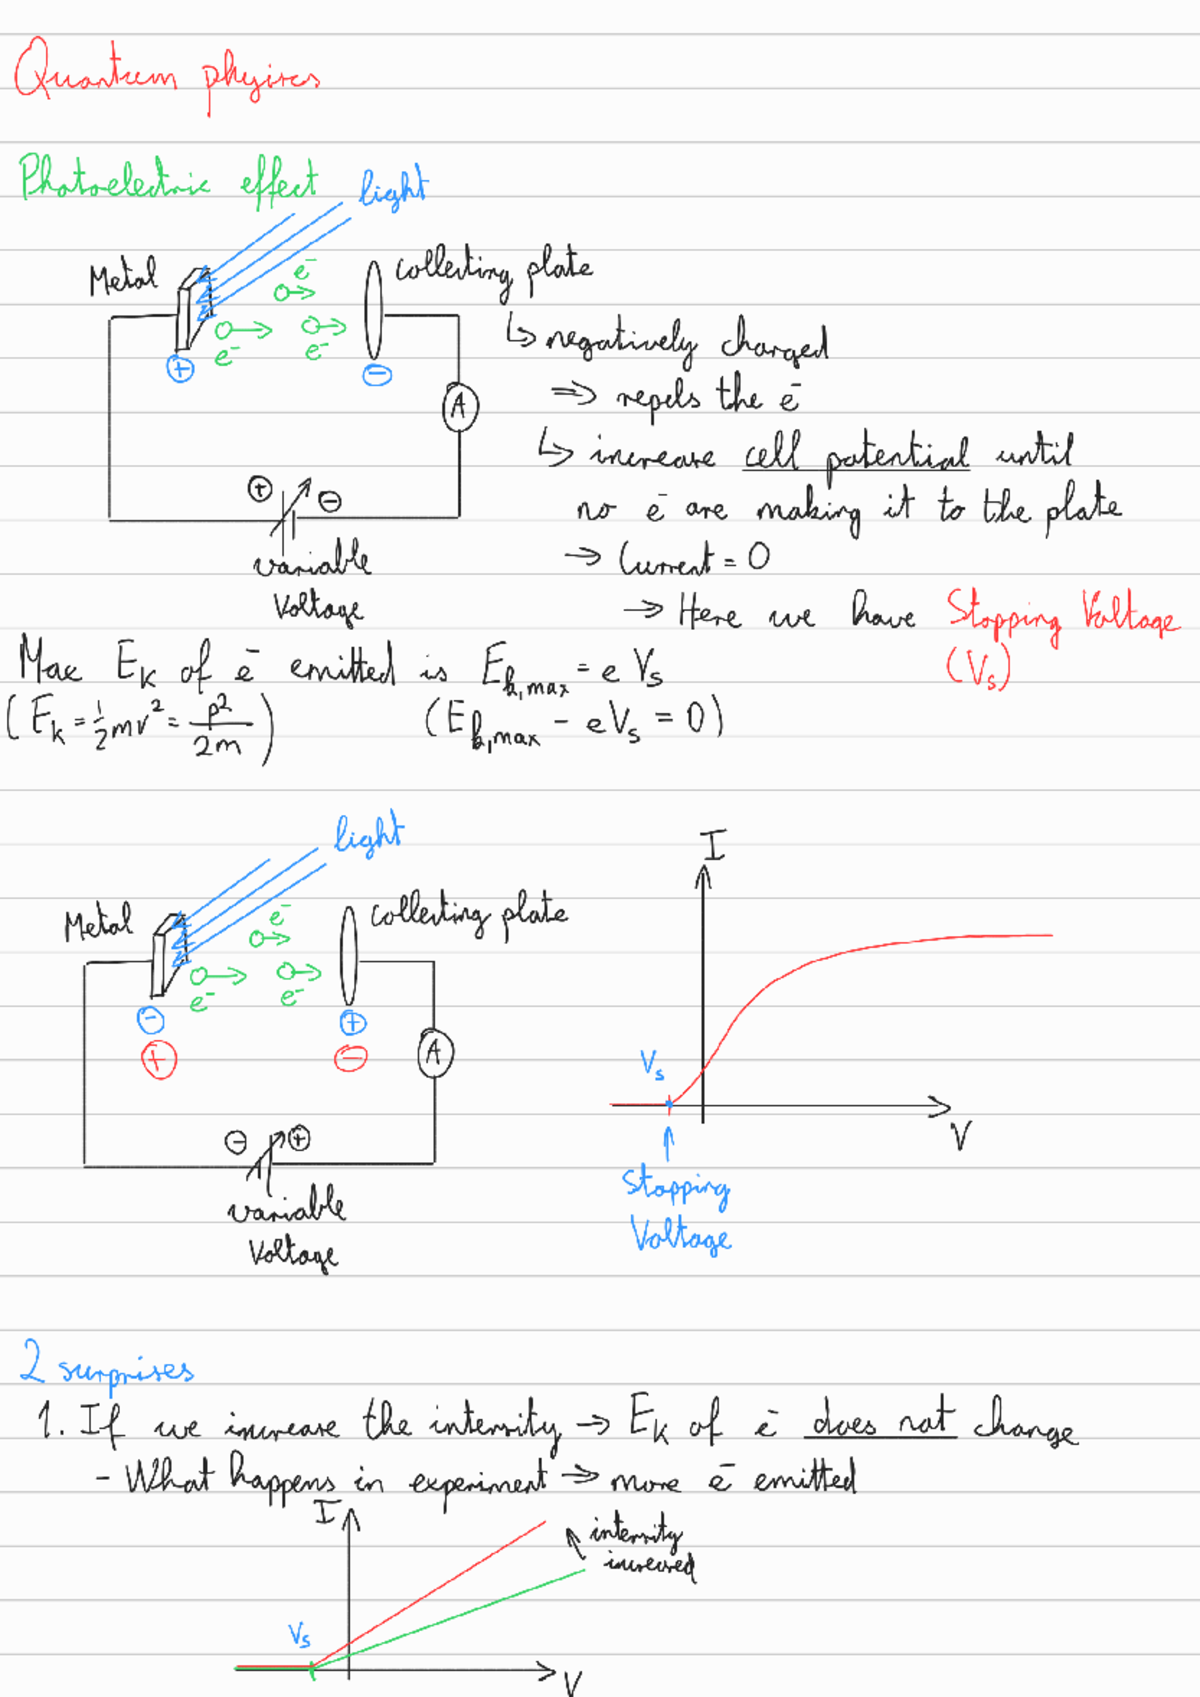 Quantum phyiscs
Photoelectric effect
light
Metal
e⁻
collecting plate
e⁻
e⁻
+
−
A
↳ negatively charged
⇒ repels the e⁻
↳ increase cell potential until
no e⁻ are making it to the plate
→ Current = 0
→ Here we have Stopping Voltage
(Vs)
+
−
variable
Voltage
Max EK of e⁻ emitted is Ek,max = e Vs
(EK = 1/2 mv² = p²/2m)
(Ek,max − eVs = 0)
light
Metal
e⁻
collecting plate
e⁻
e⁻
−
+
+
−
A
−
+
variable
Voltage
I
Vs
V
Stopping
Voltage
2 surprises
1. If we increase the intensity → EK of e⁻ does not change
- What happens in experiment → more e⁻ emitted
I
intensity
increased
Vs
V